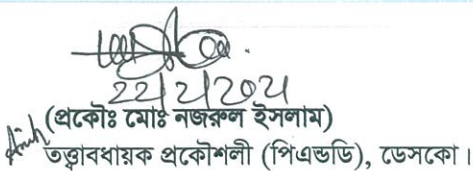 22/2/2021
(প্রকৌঃ মোঃ নজরুল ইসলাম)
তত্ত্বাবধায়ক প্রকৌশলী (পিএন্ডডি), ডেসকো।